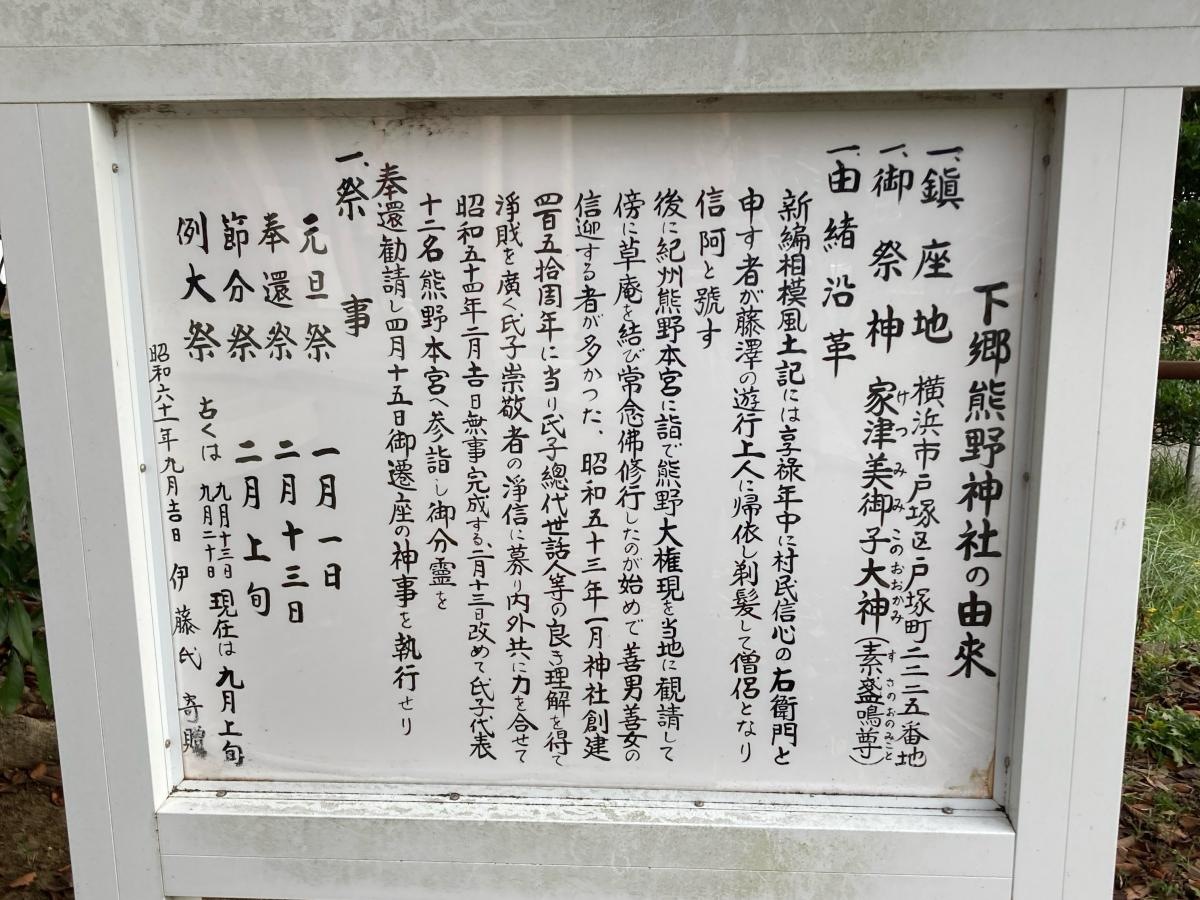 下郷熊野神社の由來
一、鎭座地 横浜市戸塚区戸塚町二二二五番地
一、御祭神 家津美御子大神(素盞鳴尊)
けつみみこのおおかみ すさのおのみこと
一、由緒沿革
新編相模風土記には享祿年中に村民信心の右衛門と
申す者が藤澤の遊行上人に帰依し剃髪して僧侶となり
信阿と號す
後に紀州熊野本宮に詣で熊野大権現を当地に観請して
傍に草庵を結び常念佛修行したのが始めで善男善女の
信迎する者が多かつた、昭和五十三年一月神社創建
四百五拾周年に当り氏子總代世話人等の良き理解を得て
淨財を廣く氏子崇敬者の淨信に募り内外共に力を合せて
昭和五十四年二月吉日無事完成する、二月十三日改めて氏子代表
十二名熊野本宮へ参詣し御分霊を
奉還勧請し四月十五日御遷座の神事を執行せり
一、祭事
元旦祭 一月一日
奉還祭 二月十三日
節分祭 二月上旬
例大祭 古くは 九月十三日 九月二十日 現在は九月上旬
昭和六十一年九月吉日 伊藤氏 寄贈